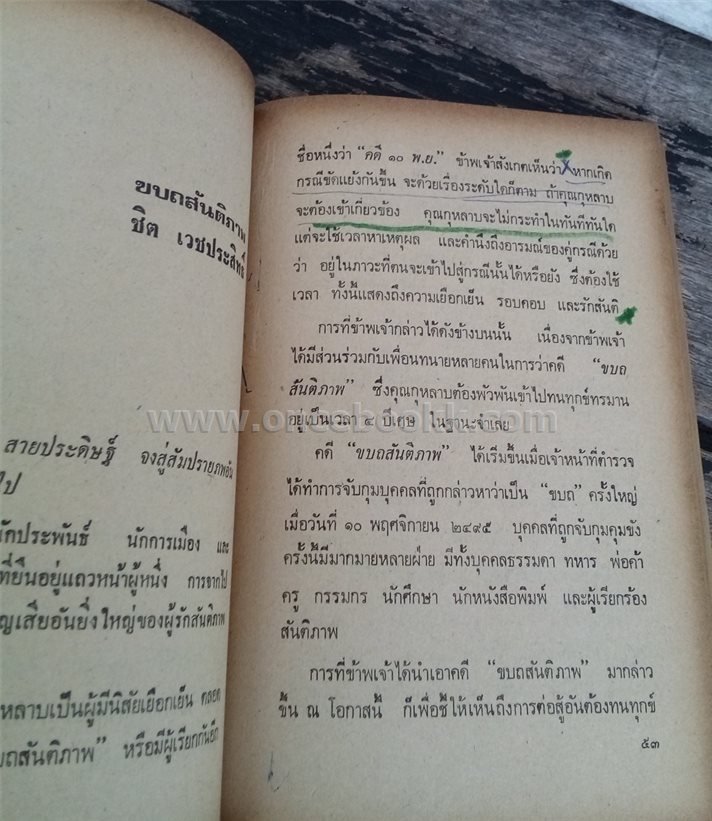 ขบถสันติภาพ
ชิต เวชประสิทธิ์
สายประดิษฐ์ จงสู่สัมปรายภพอัน
ไป
นักประพันธ์ นักการเมือง และ
ที่ยืนอยู่แถวหน้าผู้หนึ่ง การจากไป
ญเสียอันยิ่งใหญ่ของผู้รักสันติภาพ
หลาบเป็นผู้มีนิสัยเยือกเย็น ตลอด
บถสันติภาพ” หรือมีผู้เรียกกันอีก
ชื่อหนึ่งว่า “คดี ๑๐ พ.ย.” ข้าพเจ้าสังเกตเห็นว่า หากเกิด
กรณีขัดแย้งกันขึ้น จะด้วยเรื่องระดับใดก็ตาม ถ้าคุณกุหลาบ
จะต้องเข้าเกี่ยวข้อง คุณกุหลาบจะไม่กระทำในทันทีทันใด
แต่จะใช้เวลาหาเหตุผล และคำนึงถึงอารมณ์ของคู่กรณีด้วย
ว่า อยู่ในภาวะที่ตนจะเข้าไปสู่กรณีนั้นได้หรือยัง ซึ่งต้องใช้
เวลา ทั้งนี้แสดงถึงความเยือกเย็น รอบคอบ และรักสันติ
การที่ข้าพเจ้ากล่าวได้ดังข้างบนนั้น เนื่องจากข้าพเจ้า
ได้มีส่วนร่วมกับเพื่อนทนายหลายคนในการว่าคดี “ขบถ
สันติภาพ” ซึ่งคุณกุหลาบต้องพัวพันเข้าไปทนทุกข์ทรมาน
อยู่เป็นเวลา ๔ ปีเศษ ในฐานะจำเลย
คดี “ขบถสันติภาพ” ได้เริ่มขึ้นเมื่อเจ้าหน้าที่ตำรวจ
ได้ทำการจับกุมบุคคลที่ถูกกล่าวหาว่าเป็น “ขบถ” ครั้งใหญ่
เมื่อวันที่ ๑๐ พฤศจิกายน ๒๔๙๕ บุคคลที่ถูกจับกุมคุมขัง
ครั้งนี้มีมากมายหลายฝ่าย มีทั้งบุคคลธรรมดา ทหาร พ่อค้า
ครู กรรมกร นักศึกษา นักหนังสือพิมพ์ และผู้เรียกร้อง
สันติภาพ
การที่ข้าพเจ้าได้นำเอาคดี “ขบถสันติภาพ” มากล่าว
ขึ้น ณ โอกาสนี้ ก็เพื่อชี้ให้เห็นถึงการต่อสู้อันต้องทนทุกข์
๕๓